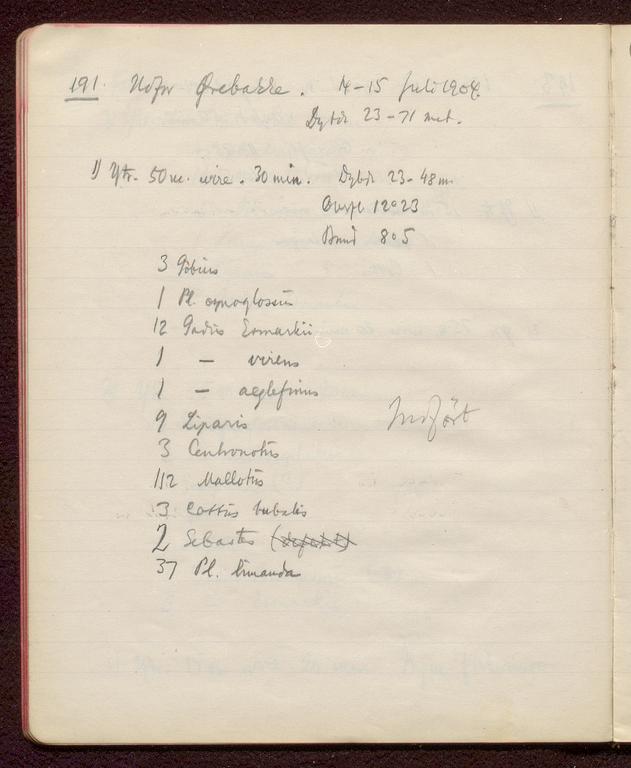 191. Udfor Ørebakke. 14-15 Juli 1904.
Dybde 23-71 met.
1) Ytr. 50 m. wire. 30 min. Dybde 23-48 m.
Overfl. 12°23
Bund 8°5
3 Gobius
1 Pl. cynoglossus
12 Gadus Esmarkii
1 — virens
1 — aeglefinus
9 Liparis
Indført
3 Centronotus
112 Mallotus
3 Cottus bubalis
2 Sebastes
37 Pl. limanda